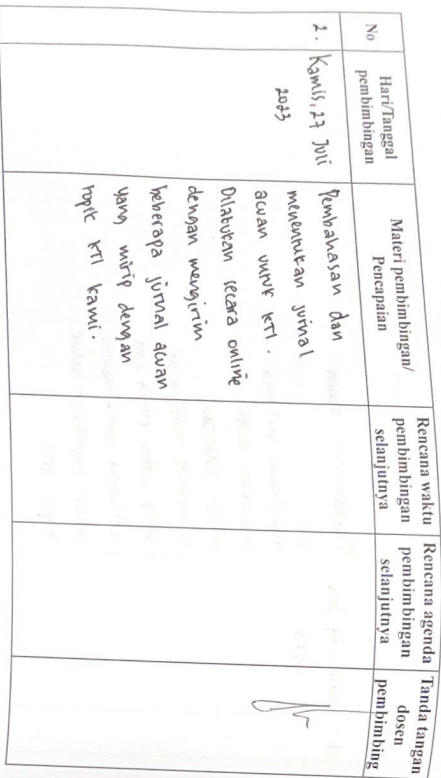 No
Hari/Tanggal
pembimbingan
Materi pembimbingan/
Pencapaian
Rencana waktu
pembimbingan
selanjutnya
Rencana agenda
pembimbingan
selanjutnya
Tanda tangan
dosen
pembimbing
2.
Kamis, 27 Juli
2023
Pembahasan dan
menentukan jurnal
acuan untuk KTI.
Dilakukan secara online
dengan mengirim
beberapa jurnal acuan
yang mirip dengan
topik KTI kami.